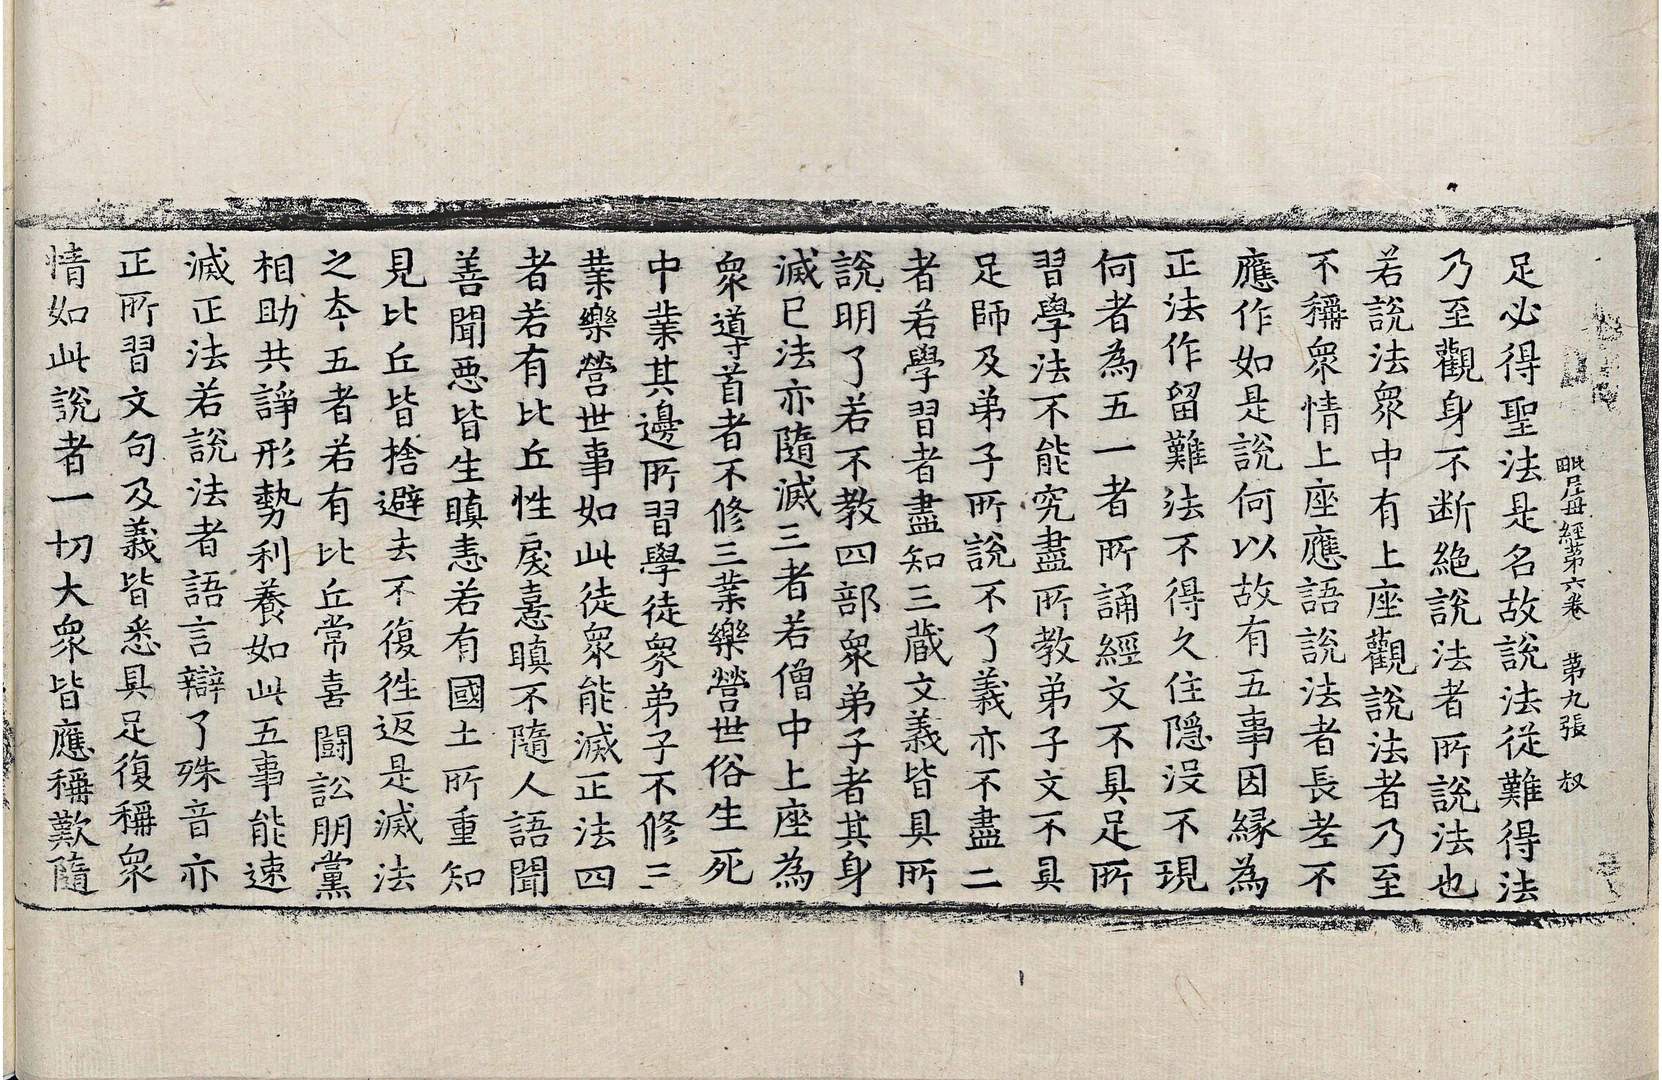 毗尼母經第六卷　第九張　叔
足必得聖法是名故說法從難得法
乃至觀身不断絕說法者所說法也
若說法衆中有上座觀說法者乃至
不稱衆情上座應語說法者長老不
應作如是說何以故有五事因縁為
正法作留難法不得久住隱没不現
何者為五一者所誦經文不具足所
習學法不能究盡所教弟子文不具
足師及弟子所說不了義亦不盡二
者若學習者盡知三蔵文義皆具所
說明了若不教四部衆弟子者其身
滅已法亦隨滅三者若僧中上座為
衆導首者不修三業樂營世俗生死
中業其邊所習學徒衆弟子不修三
業樂營世事如此徒衆能滅正法四
者若有比丘性戾憙瞋不隨人語聞
善聞惡皆生瞋恚若有國土所重知
見比丘皆捨避去不復徃返是滅法
之夲五者若有比丘常喜闘訟朋黨
相助共諍形勢利養如此五事能速
滅正法若說法者語言辯了殊音亦
正所習文句及義皆悉具足復稱衆
情如此說者一切大衆皆應稱歎隨